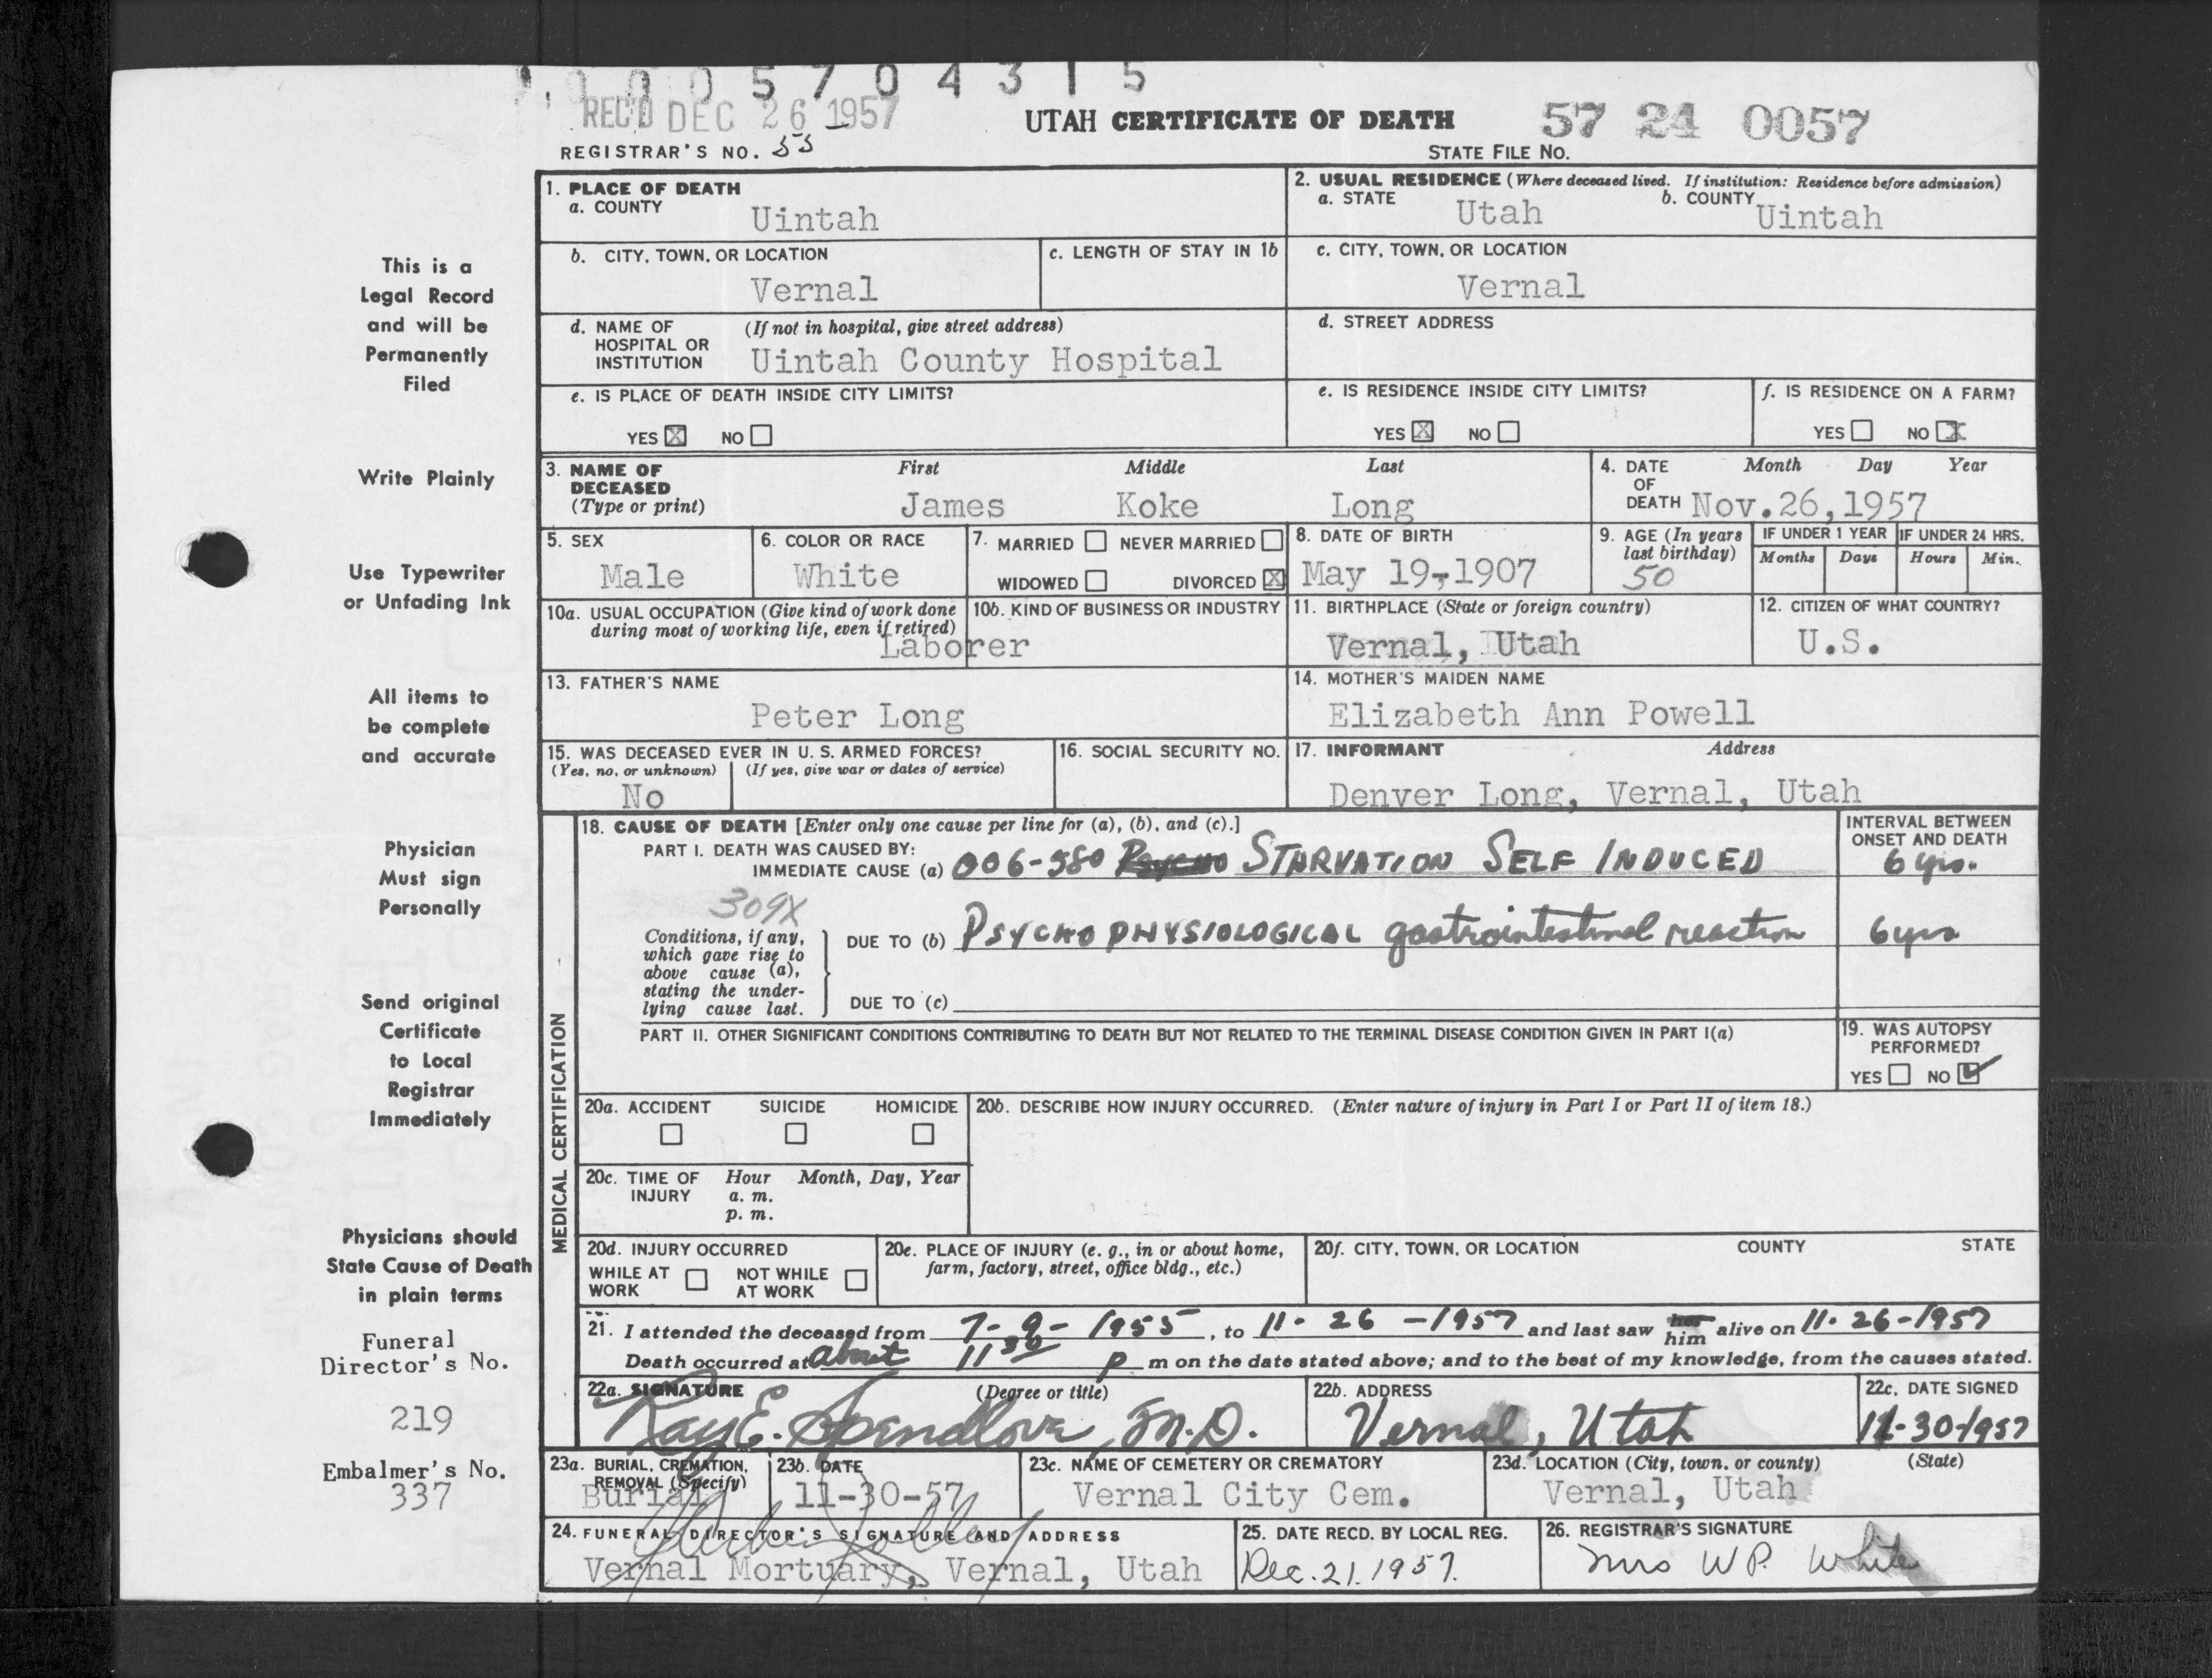 1 0 0 0 5 7 0 4 3 1 5
REC'D DEC 26 1957
UTAH CERTIFICATE OF DEATH
57 24 0057
REGISTRAR'S NO. 55
STATE FILE NO.
1. PLACE OF DEATH
a. COUNTY
Uintah
2. USUAL RESIDENCE (Where deceased lived. If institution: Residence before admission)
a. STATE Utah b. COUNTY Uintah
b. CITY, TOWN, OR LOCATION
Vernal
c. LENGTH OF STAY IN 1b
c. CITY, TOWN, OR LOCATION
Vernal
d. NAME OF HOSPITAL OR INSTITUTION (If not in hospital, give street address)
Uintah County Hospital
d. STREET ADDRESS
e. IS PLACE OF DEATH INSIDE CITY LIMITS?
YES X NO
e. IS RESIDENCE INSIDE CITY LIMITS?
YES X NO
f. IS RESIDENCE ON A FARM?
YES NO X
3. NAME OF DECEASED (Type or print)
First Middle Last
James Koke Long
4. DATE OF DEATH Month Day Year
Nov.26,1957
5. SEX
Male
6. COLOR OR RACE
White
7. MARRIED NEVER MARRIED
WIDOWED DIVORCED X
8. DATE OF BIRTH
May 19,1907
9. AGE (In years last birthday)
50
IF UNDER 1 YEAR
Months Days
IF UNDER 24 HRS.
Hours Min.
10a. USUAL OCCUPATION (Give kind of work done during most of working life, even if retired)
Laborer
10b. KIND OF BUSINESS OR INDUSTRY
11. BIRTHPLACE (State or foreign country)
Vernal, Utah
12. CITIZEN OF WHAT COUNTRY?
U.S.
13. FATHER'S NAME
Peter Long
14. MOTHER'S MAIDEN NAME
Elizabeth Ann Powell
15. WAS DECEASED EVER IN U. S. ARMED FORCES?
(Yes, no, or unknown) (If yes, give war or dates of service)
No
16. SOCIAL SECURITY NO.
17. INFORMANT Address
Denver Long, Vernal, Utah
MEDICAL CERTIFICATION
18. CAUSE OF DEATH [Enter only one cause per line for (a), (b), and (c).]
INTERVAL BETWEEN ONSET AND DEATH
PART I. DEATH WAS CAUSED BY:
IMMEDIATE CAUSE (a) 006-980 Psycho STARVATION SELF INDUCED
6 yrs.
309X
Conditions, if any, which gave rise to above cause (a), stating the underlying cause last.
DUE TO (b) PSYCHO PHYSIOLOGICAL gastrointestinal reaction
6 yrs
DUE TO (c)
PART II. OTHER SIGNIFICANT CONDITIONS CONTRIBUTING TO DEATH BUT NOT RELATED TO THE TERMINAL DISEASE CONDITION GIVEN IN PART I(a)
19. WAS AUTOPSY PERFORMED?
YES NO
20a. ACCIDENT SUICIDE HOMICIDE
20b. DESCRIBE HOW INJURY OCCURRED. (Enter nature of injury in Part I or Part II of item 18.)
20c. TIME OF INJURY Hour Month, Day, Year
a. m.
p. m.
20d. INJURY OCCURRED
WHILE AT WORK NOT WHILE AT WORK
20e. PLACE OF INJURY (e. g., in or about home, farm, factory, street, office bldg., etc.)
20f. CITY, TOWN, OR LOCATION COUNTY STATE
21. I attended the deceased from 7-9-1955, to 11-26-1957 and last saw her him alive on 11-26-1957
Death occurred at about 11 30 p m on the date stated above; and to the best of my knowledge, from the causes stated.
22a. SIGNATURE (Degree or title)
Ray E. Spendlove, M.D.
22b. ADDRESS
Vernal, Utah
22c. DATE SIGNED
11-30-1957
23a. BURIAL, CREMATION, REMOVAL (Specify)
Burial
23b. DATE
11-30-57
23c. NAME OF CEMETERY OR CREMATORY
Vernal City Cem.
23d. LOCATION (City, town, or county) (State)
Vernal, Utah
24. FUNERAL DIRECTOR'S SIGNATURE AND ADDRESS
Vernal Mortuary, Vernal, Utah
25. DATE RECD. BY LOCAL REG.
Dec. 21. 1957.
26. REGISTRAR'S SIGNATURE
Mrs W P. White
This is a
Legal Record
and will be
Permanently
Filed
Write Plainly
Use Typewriter
or Unfading Ink
All items to
be complete
and accurate
Physician
Must sign
Personally
Send original
Certificate
to Local
Registrar
Immediately
Physicians should
State Cause of Death
in plain terms
Funeral
Director's No.
219
Embalmer's No.
337